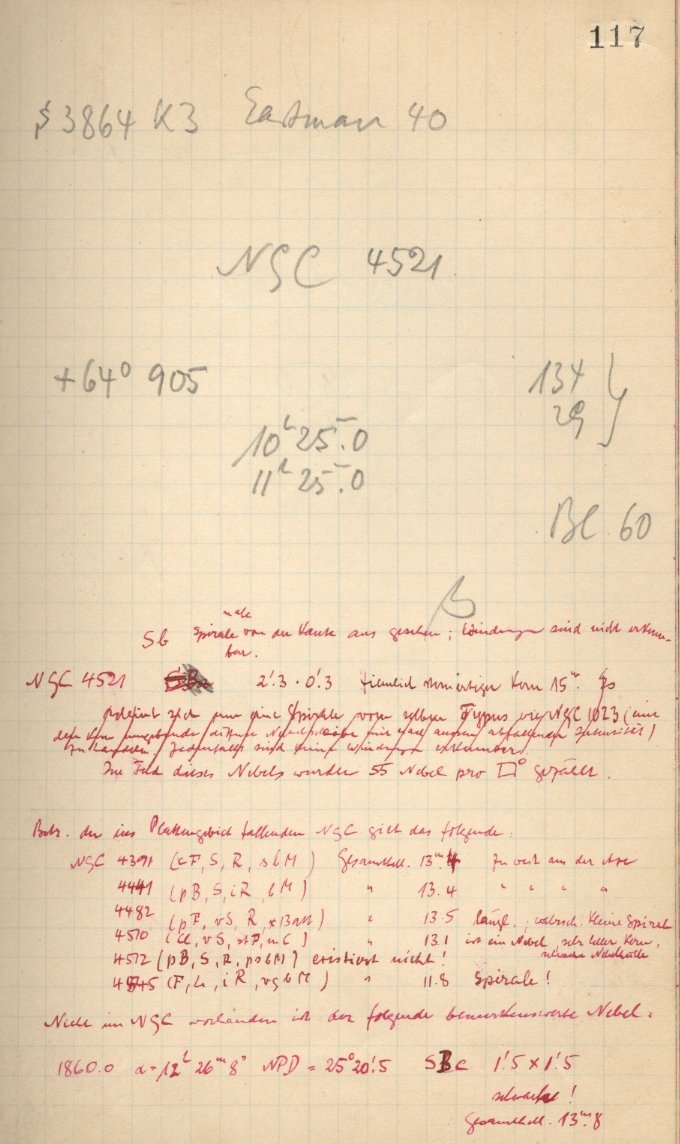 117
3864 K3 Eastman 40
NGC 4521
+64° 905
134
29
10h 25m.0
11h 25m.0
60
B
nahe
Sb Spirale von der Kante aus gesehen; Windungen sind nicht erkenn-
bar.
NGC 4521 2'.3 · 0'.3 ziemlich sternartiger Kern 15m. Es
sich um eine Spirale vom selben Typus wie NGC 1023 (eine
den Kern umgebende nach aussen abfallender
zu handeln. Jedenfalls sind keine Windungen erkennbar.
Im Feld dieses Nebels wurden 55 Nebel pro □° gezählt.
Betr. der ins Plattengebiet fallenden NGC gilt das folgende:
NGC 4391 (cF, S, R, sbM) Gesamthell. 13m.4 Zu weit aus der Axe
4441 (pB, S, iR, bM) " 13.4 " " " "
4482 (pF, vS, R, " 13.5 längl., wahrsch. kleine Spirale
4510 " 13.1 ist ein Nebel, sehr heller Kern,
schwache Nebelhülle
4512 (pB, S, R, psbM) existiert nicht!
4545 (F, L, iR, vgbM) " 11.8 Spirale!
Nicht im NGC vorhanden ist der folgende bemerkenswerte Nebel:
1860.0 α = 12h 26m 8s NPD = 25° 20'.5 SBc 1'.5 × 1'.5
schwach!
Gesamthell. 13m.8